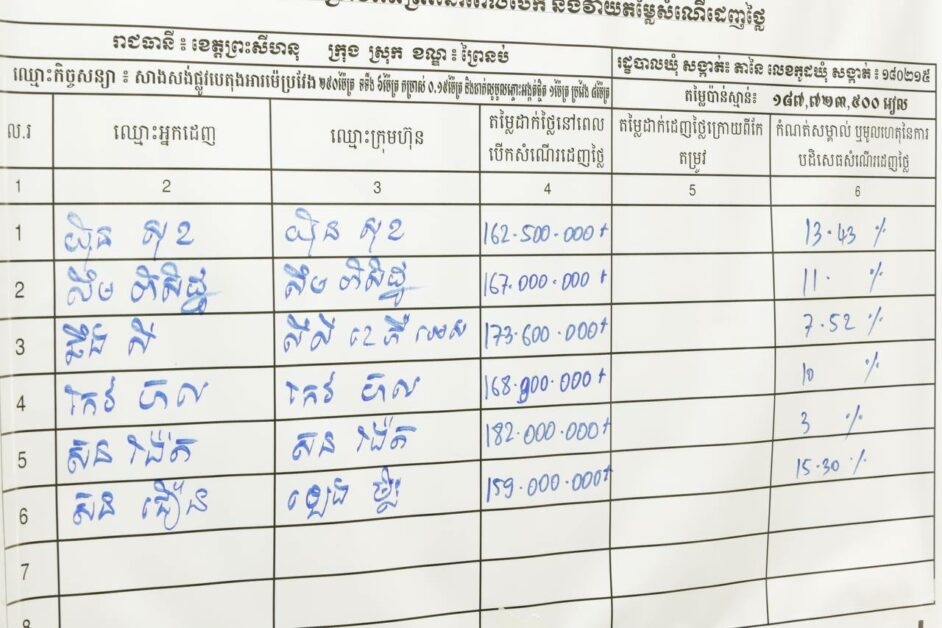 និងវាយតម្លៃសំណើដេញថ្លៃ
រាជធានី ៖ ខេត្តព្រះសីហនុ ក្រុង ស្រុក ខណ្ឌ ៖ ព្រៃនប់
រដ្ឋបាលឃុំ សង្កាត់៖ តានៃ លេខកូដឃុំ សង្កាត់ ៖ ១៨០២១៥
ឈ្មោះកិច្ចសន្យា ៖ សាងសង់ផ្លូវបេតុងអារម៉េប្រវែង ២៩០ម៉ែត្រ ទទឹង ៦ម៉ែត្រ កម្រាស់ 0.១៩ម៉ែត្រ
តម្លៃប៉ាន់ស្មាន៖ ១៨៧,៧២៣,៥០០ រៀល
ល.រ ឈ្មោះអ្នកដេញ ឈ្មោះក្រុមហ៊ុន តម្លៃដាក់ថ្លៃនៅពេល តម្លៃដាក់ដេញថ្លៃក្រោយពីកែ កំណត់សម្គាល់ ឬមូលហេតុនៃការ
បើកសំណើរដេញថ្លៃ តម្រូវ បដិសេធសំណើរដេញថ្លៃ
1 2 3 4 5 6
1 យ៉ិន សុខ យ៉ិន សុខ 162.500.000៛ 13.43 %
2 សឹម ពិសិដ្ឋ សឹម ពិសិដ្ឋ 167.000.000៛ 11. %
3 ឆឹង លី 173.600.000៛ 7.52 %
4 កែវ ផល កែវ ផល 168.900.000៛ 10 %
5 សន 182.000.000៛ 3 %
6 សន ឡេង 159.000.000៛ 15.30 %
7
8